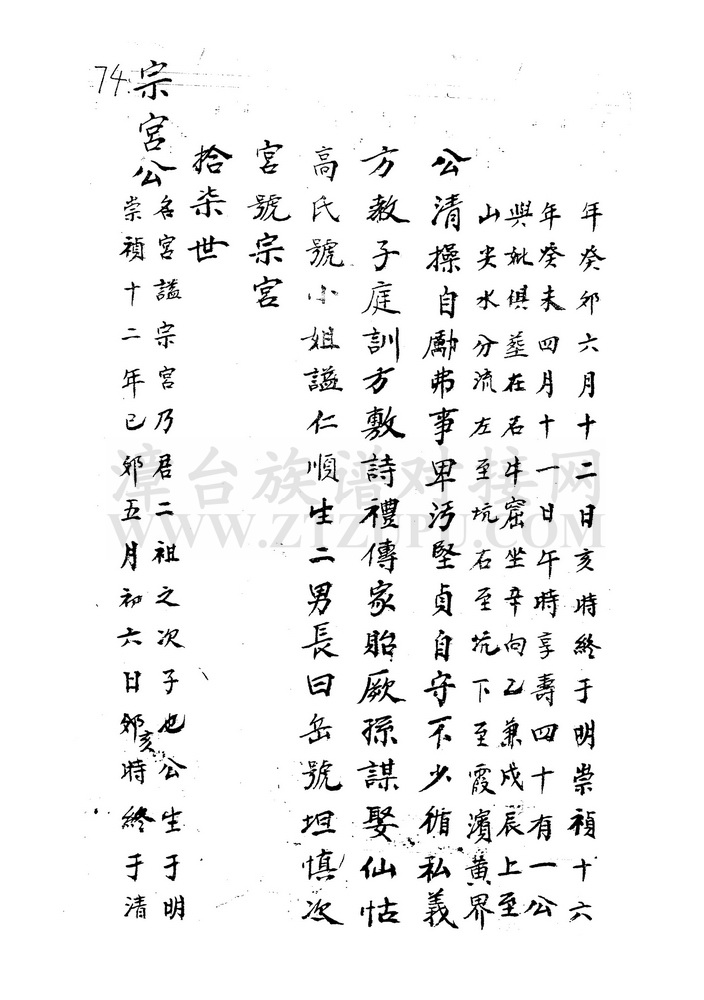 年癸卯六月十二日亥時終于明崇禎十六
年癸未四月十一日午時享壽四十有一公
與妣俱塟在石牛窟坐辛向乙兼戌辰上至
山尖水分流左至坑石至坑下至霞濱黄界
公清操自勵弗事卑汚堅貞自守不少循私義
方教子庭訓方敷詩禮傳家貽厥孫謀娶仙怙
高氏號小姐謚仁順生二男長曰岳號坦慎次
宮號宗宮
拾柒世
宗宮公名宮謚宗宮乃君二祖之次子也公生于明
崇禎十二年已卯五月初六日卯亥時終于清
74.
漳台族谱对接网
WWW.ZTZUPU.COM